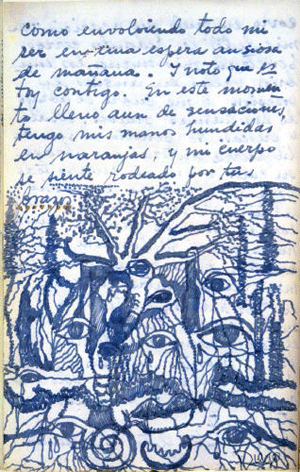 como envolviendo todo mi
ser en una espera ansiosa
de mañana. I noto que es
toy contigo. En este momen
to lleno aun de sensaciones,
tengo mis manos hundidas
en naranjas, y mi cuerpo
se siente rodeado por tus
brazos.